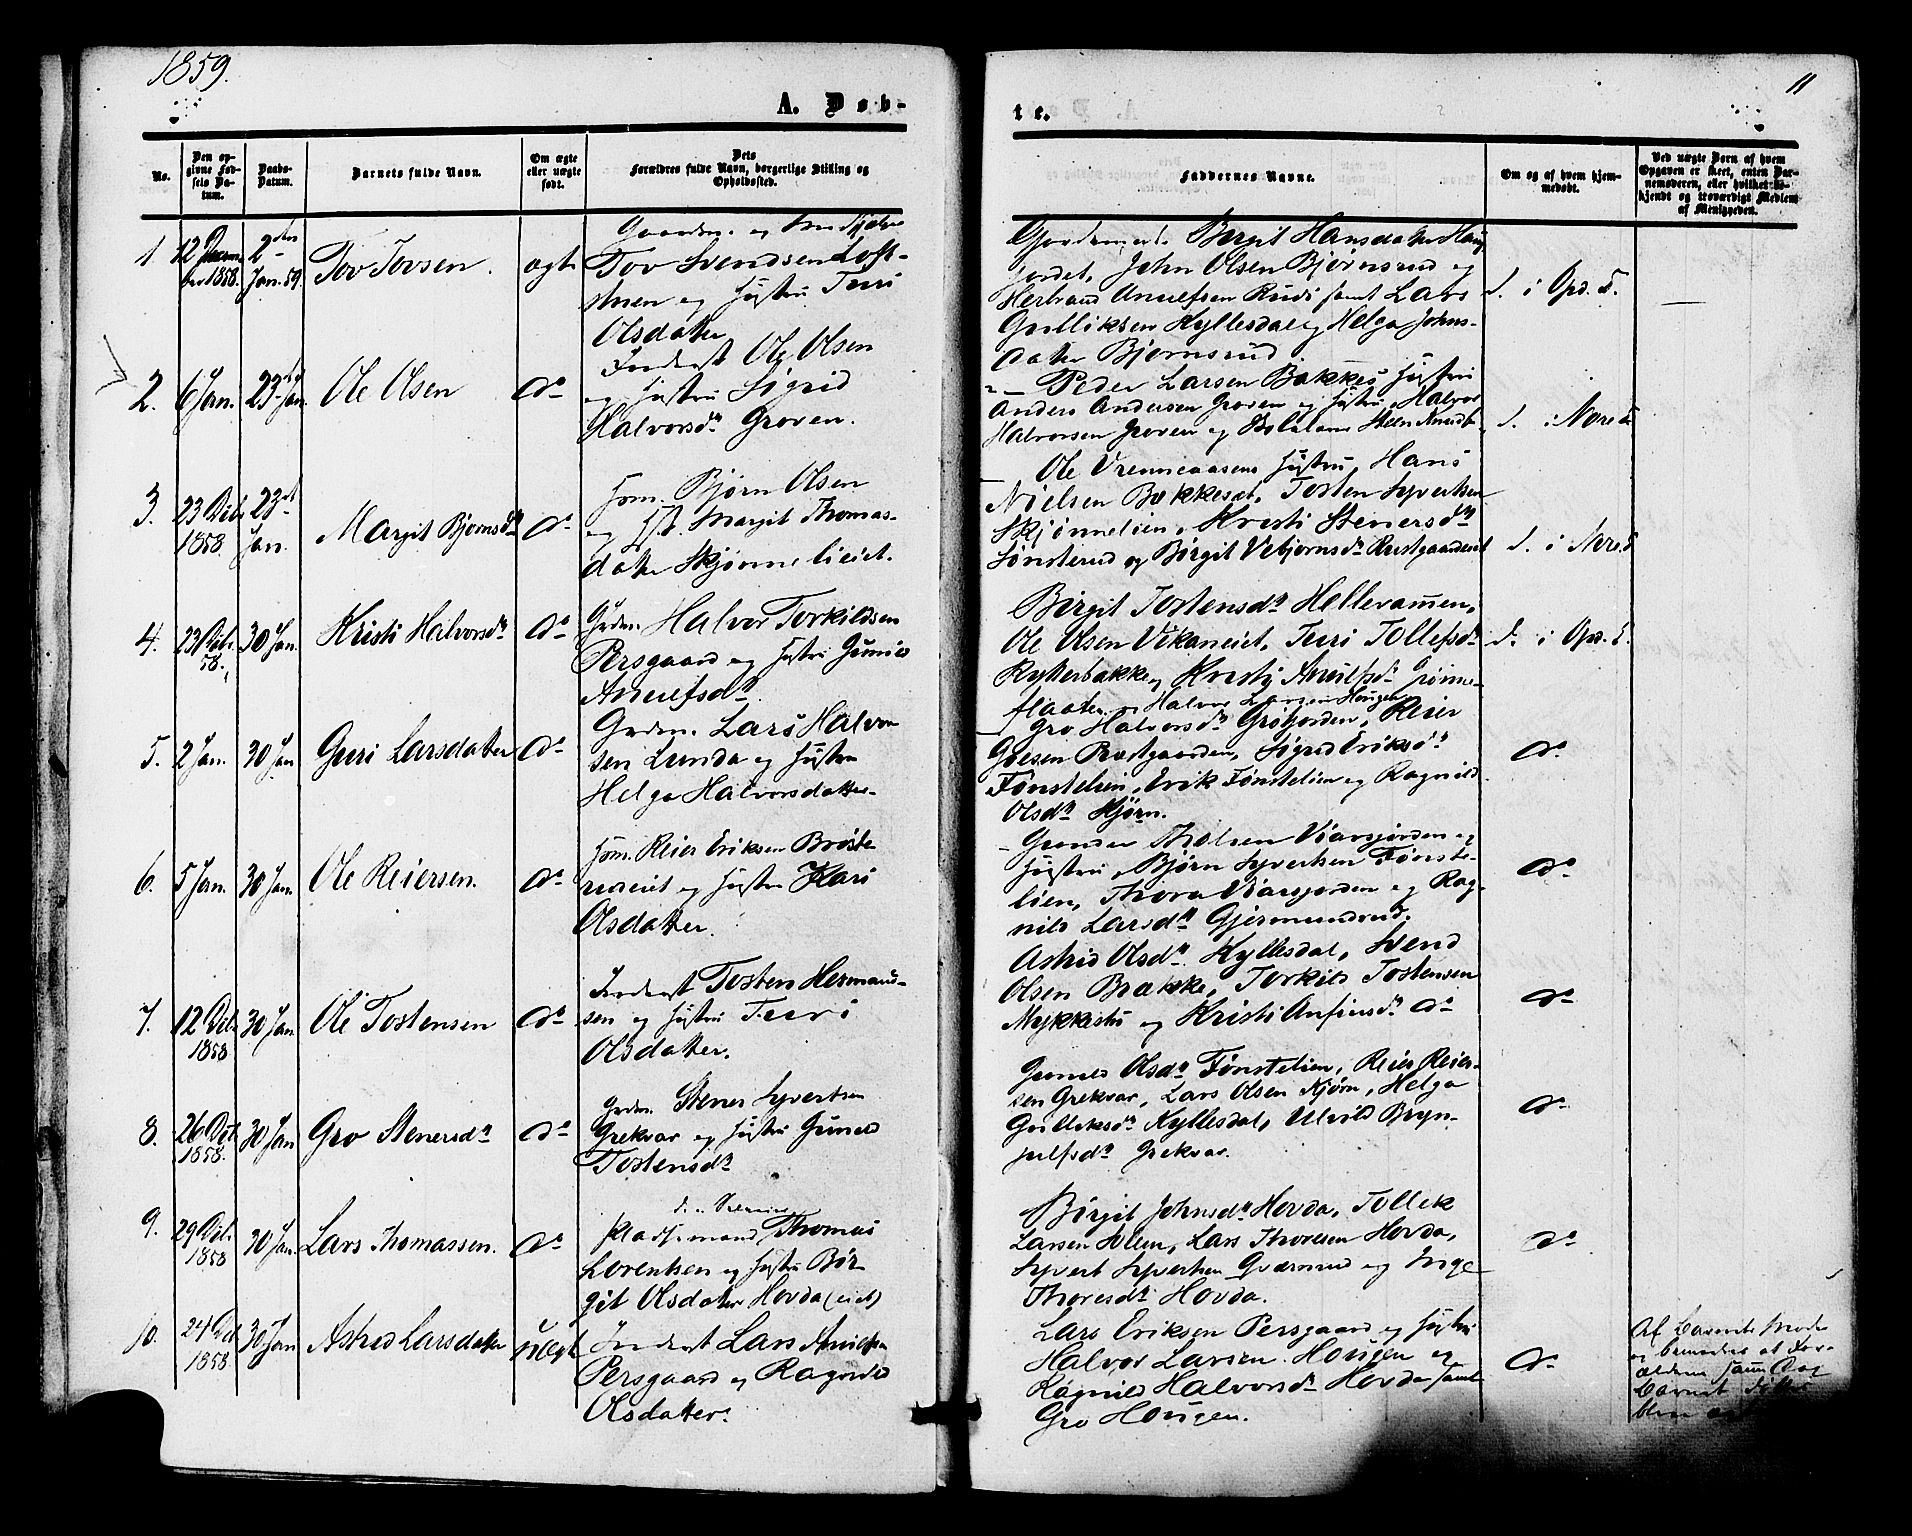 1859.
11
A. Døb-
te.
No.
Den op-
givne Fød-
sels Da-
tum.
Daabs-
Datum.
Barnets fulde Navn.
Om ægte
eller uægte
født.
Dets
Forældres fulde Navn, borgerlige Stilling og
Opholdssted.
Faddernes Navne.
Om og af hvem hjem-
medøbt.
Ved uægte Børn af hvem
Opgaven er skeet, enten Bar-
nemoderen, eller hvilket be-
kjendt og troværdigt Medlem
af Menigheden.
1
12 Decem-
ber 1858.
2den
Jan. 59.
Tov Tovsen.
ægte
Gaardm. og
Tov Svendsen Loft-
stuen og Hustru Turi
Olsdatter
Birgit Hansdatter Haug-
jordet, John Olsen Bjørnsrud og
Herbrand Arnulfsen Ruds samt Lars
Gulliksen Kyllesdal og Helga Johns-
datter Bjørnsrud
d. i Opd. S.
2.
6 Jan.
23de Jan.
Ole Olsen
do
Inderst Ole Olsen
og Hustru Sigrid
Halvorsdr Groven.
Peder Larsen Bakkes Hustru
Anders Andersen Groven og Hustru, Halvor
Halvorsen Groven og
d. i Nore S
3.
23 Debr
1858.
23de
Jan.
Margit Bjørnsdr
do
Hsm. Bjørn Olsen
og Hst. Margit Thomas-
datter Skjønnelieiet.
Ole Vrenneaasens Hustru, Hans
Nielsen Bækkeset, Tosten Syvertsen
Skjønnelien, Kristi Stenersdr
Sønsterud og Birgit Vebjørnsdr Prestgaardseiet
d. i Nore S
4.
23 Debr
58.
30 Jan.
Kristi Halvorsdr
do
Grdm. Halvor Torkildsen
Persgaard og Hustru Gunild
Arnulfsdr.
Birgit Tostensdr Hellevammen,
Ole Olsen Vikaneiet, Turi Tollefsdr
Rytterbakke, Kristi Arnulfsdr Grønne-
flaaten, Halvor Larsen Hougen
d. i Opd. S.
5.
2 Jan.
30 Jan
Guri Larsdatter
do
Grdm. Lars Halvor-
sen Lunda og Hustru
Helga Halvorsdatter-
Gro Halvorsdr Grøfjorden, Reier
Goesen Præstgaarden, Sigrid Eriksdr
Fønstelien, Erik Fønstelien og Ragnild
Olsdr Kjørn.
do
6.
5 Jan.
30 Jan.
Ole Reiersen.
do
Hsm. Reier Eriksen Brøste-
rudeiet og Hustru Kari
Olsdatter.
Gunder Tholsen Viarsjorden og
Hustru, Bjørn Syvertsen Fønste-
lien, Thora Viarsjorden og Rag-
nild Larsdr Gjermundrud.
do
7.
12 Debr
1858
30 Jan
Ole Tostensen
do
Inderst Tosten Hermand-
sen og Hustru Turi
Olsdatter.
Astrid Olsdr Kyllesdal, Svend
Olsen Brække, Torkild Tostensen
Mykkestu og Kristi Anfinsdr do
do
8.
26 Det
1858.
30 Jan
Gro Stenersdr
do
Grdm. Stener Syvertsen
Grekvar og Hustru Gunild
Tostensdr
Gunild Olsdr Fønstelien, Reier Reier-
sen Grekvar, Lars Olsen Kjørn, Helga
Gulliksdr Kyllesdal, Ulvild Bryn-
julfsdr Grekvar.
do
9.
29 Debr
1858
30 Jan.
Lars Thomassen.
do
Pladsemand Thomas
Lorentsen og Hustru Bir-
git Olsdatter Hovda(eiet)
Birgit Johnsdr Hovda, Tollek
Larsen Holem, Lars Thoresen Hovda,
Syvert Syvertsen Gværnrud og Inge
Thoresdr Hovda.
do
10.
24 Det
1858
30 Jan
Astrid Larsdatter
uægte
Inderst Lars Arnulfsen
Persgaard og Ragnild
Olsdatter.
Lars Eriksen Persgaard og Hustru
Halvor Larsen Hougen og
Ragnild Halvorsdr Hovda samt
Gro Hougen.
do
Af Barnets Moder